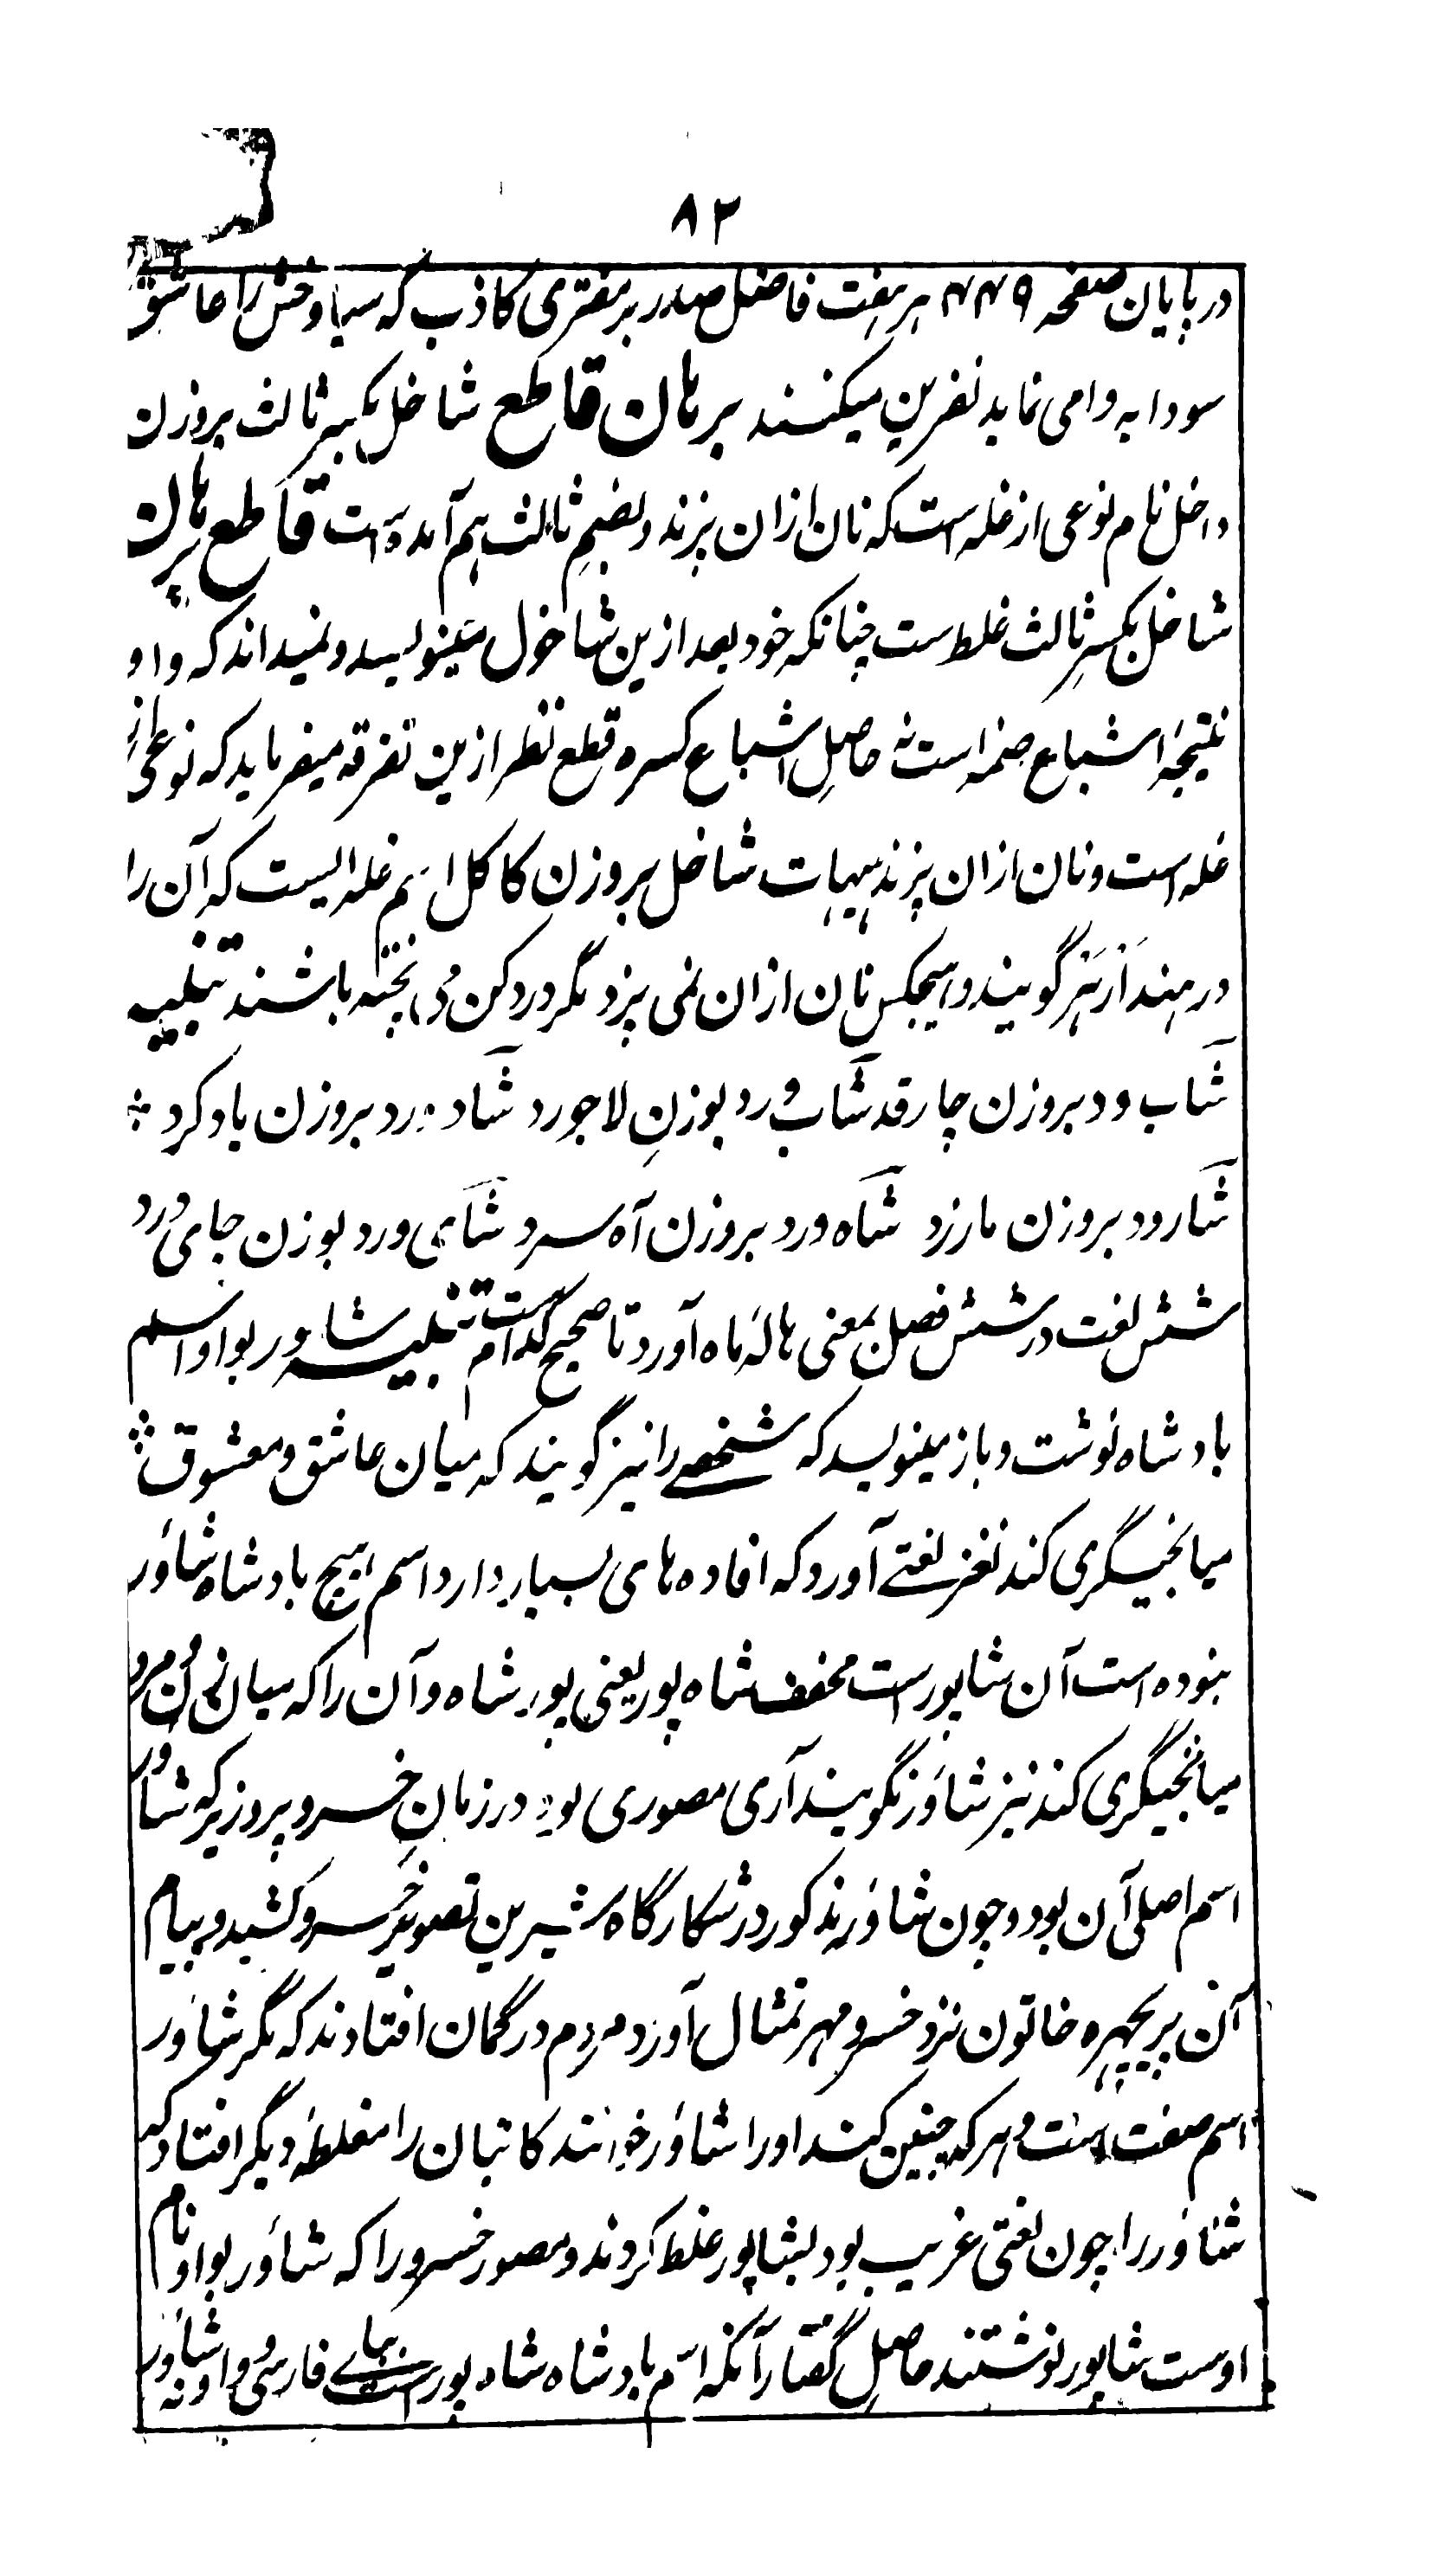 ۸۲
در پایان صفحه ۴۴۹ هر هفت فاضل صدر بر مفتری کاذب که سیاوخش را عاشق
سودابه وامی نماید نفرین میکنند برهان قاطع شاخل بکسر ثالث بروزن
داخل نام نوعی از غله است که نان ازان پزند و بضمِ ثالث هم آمده است قاطع برهان
شاخل بکسرِ ثالث غلط ست چنانکه خود بعد ازین شاخول مینویسد و نمیداند که واو
نتیجۂ اشباع ضمه است نه حاصلِ اشباع کسره قطع نظر ازین تفرقه میفرماید که نوعی از
غله است و نان ازان پزند هیهات شاخل بروزن کاکل اسم غله ایست که آن را
در هند اَرهَر گویند و هیچکس نان ازان نمی پزد مگر در دکن می پخته باشند تنبیه
شاب ود بروزن چارقد شاب ورد بوزنِ لاجورد شاد ورد بروزن بادکرد
شارود بروزن مارزد شاه ورد بروزن آه سرد شای ورد بوزن جای درد
شش لغت در شش فصل بمعنی هالۂ ماه آورد تا صحیح کدام ست تنبیه شاور بواو اسم
بادشاه نوشت و باز مینویسد که شخصے را نیز گویند که میان عاشق و معشوق
میانجیگری کند نغز لغتے آورد که افاده های بسیار دارد اسم هیچ بادشاه شاوَر
نبوده است آن شاپورست مخفف شاه پور یعنی پور شاه و آن را که میان زن و مرد
میانجیگری کند نیز شاوَر نگویند آری مصوری بود در زمانِ خسرو پرویز که شاور
اسم اصلی آن بود و چون شاوَر مذکور در شکارگاه شیرین تصویر خسرو کشید و پیام
آن پریچهره خاتون نزد خسرو مهر تمثال آورد مردم در گمان افتادند که مگر شاوَر
اسم صفت است و هر که چنین کند اورا شاوَر خوانند کاتبان را مغلطۂ دیگر افتاد که
شاوَر را چون لغتی غریب بود بشاپور غلط کردند و مصور خسرو را که شاوَر بواو نام
اوست شاپور نوشتند حاصلِ گفتار آنکه اسم بادشاه شاه پور است ببای فارسی و واو نه شاوَر